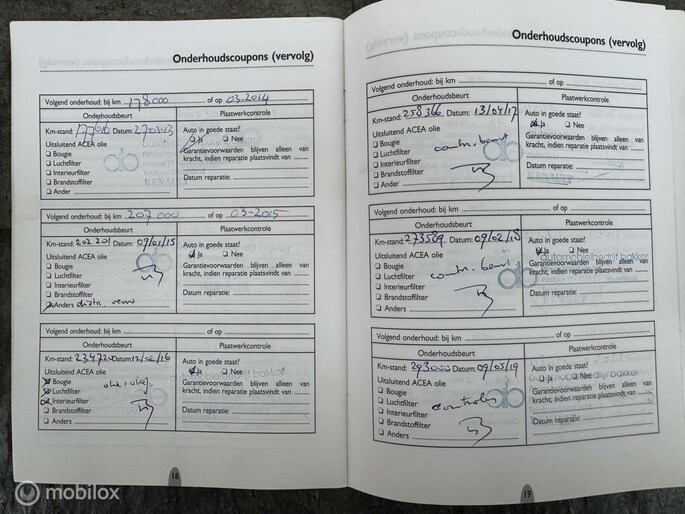 Onderhoudscoupons (vervolg)
Volgend onderhoud: bij km 178000 of op 03-2014
Onderhoudsbeurt Plaatwerkcontrole
Km-stand: Datum:
Auto in goede staat?
Uitsluitend ACEA olie
Ja Nee
Bougie
Garantievoorwaarden blijven alleen van
Luchtfilter
kracht, indien reparatie plaatsvindt van
Interieurfilter
Brandstoffilter
Datum reparatie:
Anders
RENAULT
Volgend onderhoud: bij km 207000 of op 03-2015
Onderhoudsbeurt Plaatwerkcontrole
Km-stand: 202 201 Datum: 09/01/15
Auto in goede staat?
Uitsluitend ACEA olie
Ja Nee
Bougie
Garantievoorwaarden blijven alleen van
Luchtfilter
kracht, indien reparatie plaatsvindt van
Interieurfilter
Brandstoffilter
Datum reparatie:
Anders distr. riem
Volgend onderhoud: bij km of op
Onderhoudsbeurt Plaatwerkcontrole
Km-stand: Datum: 12/02/16
Auto in goede staat?
Uitsluitend ACEA olie
Ja Nee
Bougie
Garantievoorwaarden blijven alleen van
Luchtfilter
kracht, indien reparatie plaatsvindt van
Interieurfilter
Brandstoffilter
Datum reparatie:
Anders
18
Onderhoudscoupons (vervolg)
Volgend onderhoud: bij km of op
Onderhoudsbeurt Plaatwerkcontrole
Km-stand: 258366 Datum: 13/04/17
Auto in goede staat?
Uitsluitend ACEA olie
Ja Nee
Bougie
Garantievoorwaarden blijven alleen van
Luchtfilter contr. beurt
kracht, indien reparatie plaatsvindt van
Interieurfilter
Brandstoffilter
Datum reparatie:
Ander
Volgend onderhoud: bij km of op
Onderhoudsbeurt Plaatwerkcontrole
Km-stand: 273589 Datum: 09/02/18
Auto in goede staat?
Uitsluitend ACEA olie
Ja Nee
automobielbedrijf bakker
Bougie
Garantievoorwaarden blijven alleen van
Luchtfilter contr. beurt
kracht, indien reparatie plaatsvindt van
Interieurfilter
Brandstoffilter
Datum reparatie:
Anders
Volgend onderhoud: bij km of op
Onderhoudsbeurt Plaatwerkcontrole
Km-stand: Datum: 09/05/19
Auto in goede staat?
Uitsluitend ACEA olie
Ja Nee
Bougie
Garantievoorwaarden blijven alleen van
Luchtfilter
kracht, indien reparatie plaatsvindt van
Interieurfilter controle
Brandstoffilter
Datum reparatie:
Anders
19
mobilox